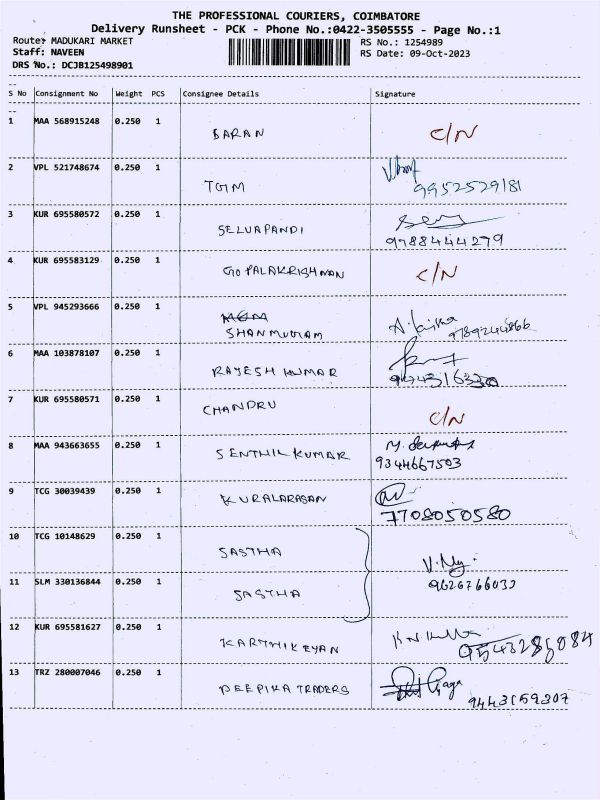 THE PROFESSIONAL COURIERS, COIMBATORE
Delivery Runsheet - PCK - Phone No.:0422-3505555 - Page No.:1
Route: MADUKARI MARKET
RS No.: 1254989
Staff: NAVEEN
RS Date: 09-Oct-2023
DRS No.: DCJB125498901
S No Consignment No Weight PCS Consignee Details Signature
1 MAA 568915248 0.250 1 BARAN C/N
2 VPL 521748674 0.250 1 TGM
9952529181
3 KUR 695580572 0.250 1 SELVAPANDI
9788444279
4 KUR 695583129 0.250 1 GOPALAKRISHNAN C/N
5 VPL 945293666 0.250 1
SHANMUGAM 9789244866
6 MAA 103878107 0.250 1 RAYESH KUMAR
7 KUR 695580571 0.250 1 CHANDRU C/N
8 MAA 943663655 0.250 1 SENTHIL KUMAR
9344667503
9 TCG 30039439 0.250 1 KURALARASAN
7708050580
10 TCG 10148629 0.250 1 SASTHA
11 SLM 330136844 0.250 1 SASTHA
12 KUR 695581627 0.250 1 KARTHIKEYAN
13 TRZ 280007046 0.250 1 DEEPIKA TRADERS
9443159307